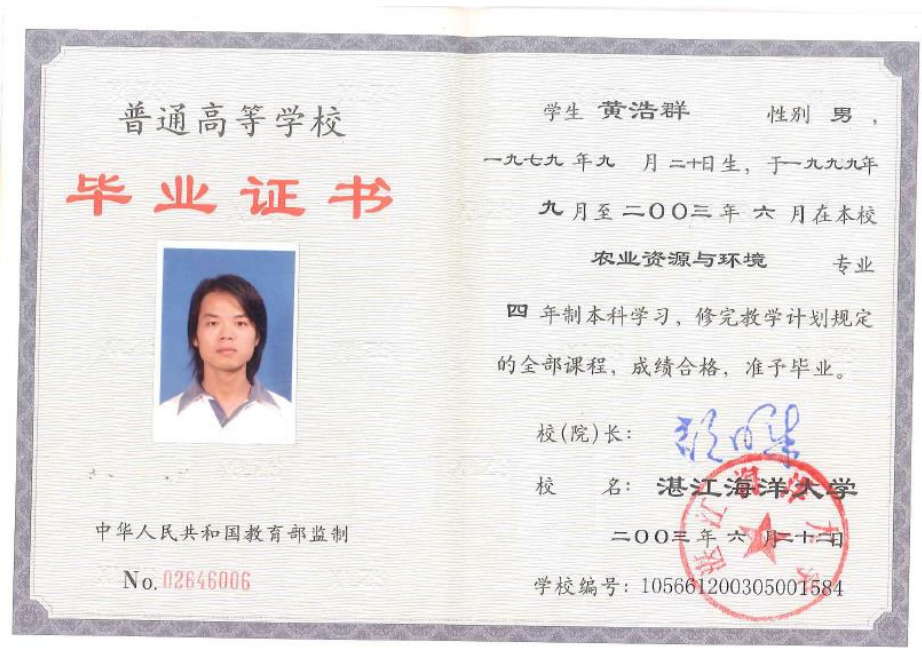 普通高等学校
毕业证书
中华人民共和国教育部监制
No. 02646006
学生 黄浩群 性别 男，
一九七九 年 九 月 二十日生，于一九九九年
九 月至 二〇〇三 年 六 月在本校
农业资源与环境 专业
四 年制本科学习，修完教学计划规定
的全部课程，成绩合格，准予毕业。
校(院)长：
校 名：湛江海洋大学
二〇〇三 年 六 月二十二日
学校编号：105661200305001584
湛江海洋大学